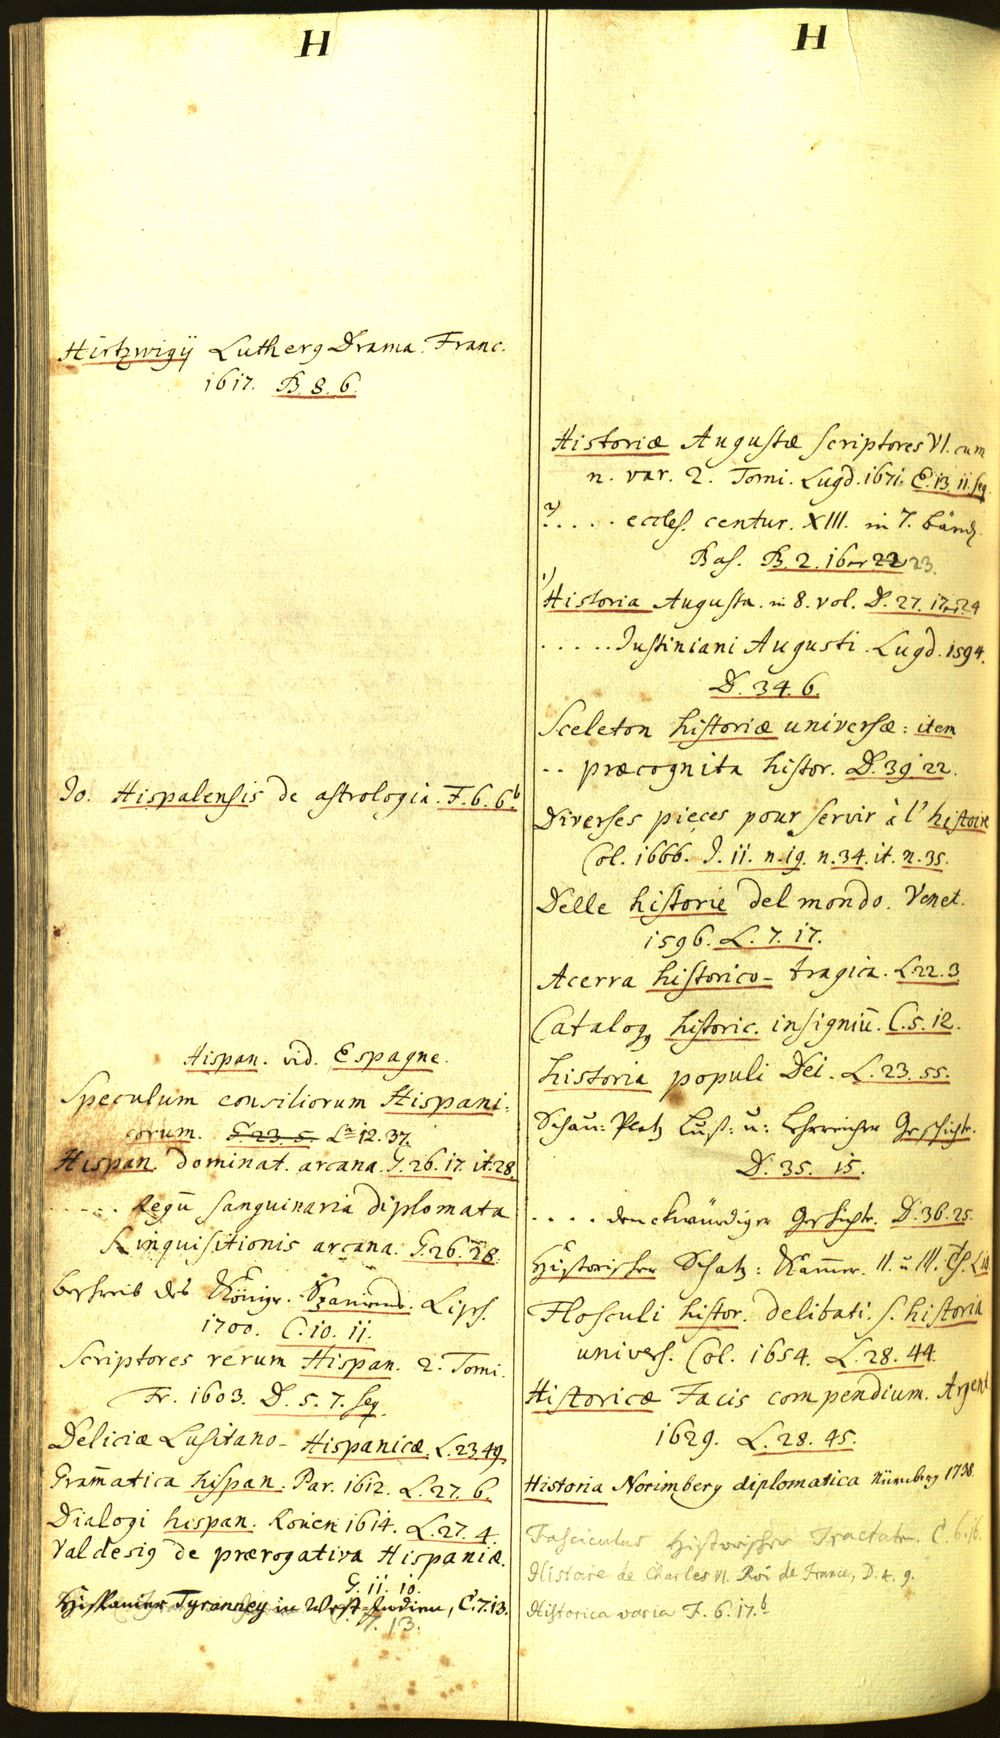 H
Hirtzwigij Lutherg Drama. Franc.
1617. B. 8. 6.
Jo. Hispalensis de astrologia. F. 6. 6b
Hispan. vid. Espagne.
Speculum consiliorum Hispani-
corum. G 23. 5. L. 12. 37.
Hispan. dominat. arcana. G. 26. 17. it. 28.
- - - - Regū sanguinaria diplomata
& inquisitionis arcana. G. 26. 28.
beschreib des Königr. Spaniens. Lips.
1700. C. 10. 11.
Scriptores rerum Hispan. 2. Tomi.
Fr. 1603. D. 5. 7. seq.
Deliciæ Lusitano-Hispanicæ. L. 23. 49.
Gram̄atica hispan. Par. 1612. L. 27. 6.
Dialogi hispan. Rouen 1614. L. 27. 4.
Valdesig de prærogativa Hispaniæ.
G. 11. 10.
Hispanier Tyranney in West-Indien, C. 7. 13.
7. 13.
H
Historiæ Augustæ scriptores VI. cum
n. var. 2. Tomi. Lugd. 1671. E. 13. 11. seq.
2) . . . . eccles. centur. XIII. in 7. bänd.
Bas. B. 2. 16 22 23.
1) Historia Augusta. in 8. vol. D. 27. 17 24
. . . . . Justiniani Augusti. Lugd. 1594.
D. 34. 6.
Sceleton historiæ universæ: item
. . præcognita histor. D. 39. 22.
Diverses pieces pour servir à l'histoire
Col. 1666. J. 11. n. 19. n. 34. it. n. 35.
Delle historie del mondo. Venet.
1596. L. 7. 17.
Acerra historico-tragica. L 22. 3
Catalog historic. insigniū. C. 5. 12.
historia populi Dei. L. 23. 55.
Schau-Platz Lust- u: Lehrreicher Geschicht.
D. 35. 15.
. . . . denckwürdiger Geschicht. D. 36. 25.
Historischer Schatz-Kam̄er. II. u III.
Flosculi histor. delibati. s. historia
univers. Col. 1654. L. 28. 44.
Historicæ Facis compendium. Argent
1629. L. 28. 45.
Historia Norimberg diplomatica Nürnberg 1738.
Fasciculus Historischer Tractat. C. 6.
Histoire de Charles VI. Roi de France, D. 4. 9.
Historica varia F. 6. 17.b